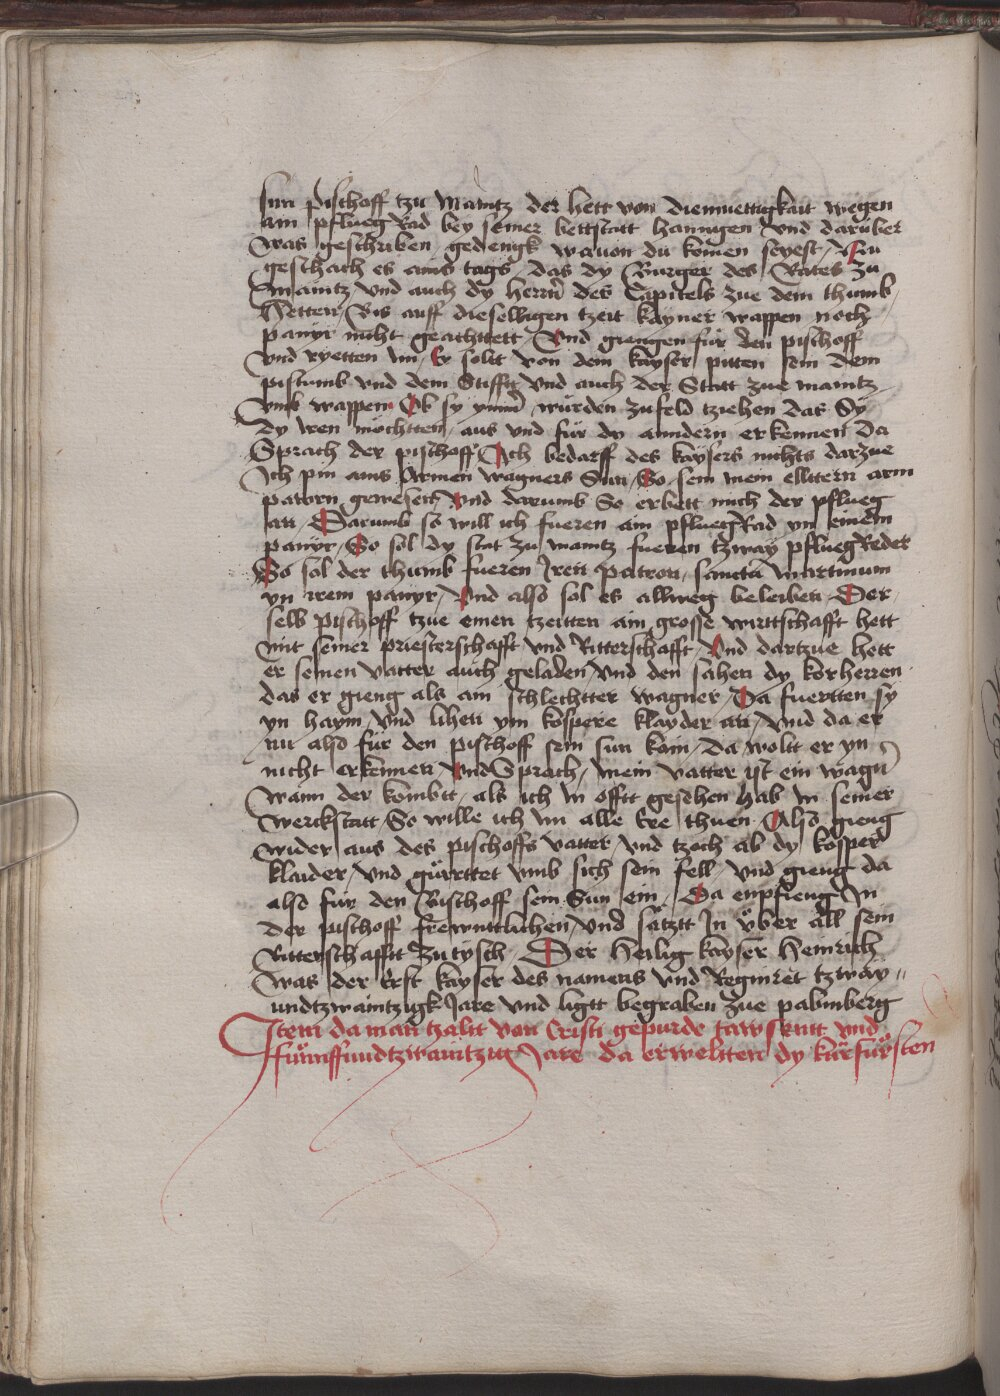 sun pischoff tzu Maintz der hett von diemuettigkait wegen
ain pfluegRad bey seiner bettstatt hanngen und darüber
was geschriben gedengk wauon du komen seyest / Nu
geschach es ains tags / das dy Burger des Rates zu
Maintz und auch dy herrn des Capitels zue dem thumb /
Hetten / Bis auff dieselbigen tzeit kayner wappen noch
panyr nicht geachttett / Und giengen für den pischoff
und ryetten im / Er soltt von dem kayser pitten sein dem
pistumb und dem Stifft und auch der Statt zue maintz
umb wappen Ob sy ymmer würden zufeld tziehen das Sy
dy iren möchtten / aus und für dy anndern erkennen Da
Sprach der pischoff Ich bedarff des kaysers nichts darzue
Ich pin ains Armen wagners Sun / So sein mein elltern arm
pawrn gewesen / Und darumb So erbett mich der pflueg
an / Darumb so will ich fueren ain pfluegRad yn einem
panyr / So sol dy stat zu maintz fueren tzway pfluegReder
So sol der thumb fueren Iren patron / sanctu martinum
yn irem panyr / Und also sol es allweg beleiben / Der
selb pischoff tzue einen tzeitten ain grosse wirttschafft hett
mit seiner priesterschafft und Ritterschafft / Und dartzue hett
er seinen vatter auch geladen / und den sahen dy korherren
das er gieng als ain schlechtter wagner / Da fuertten sy
yn haym / und lihen ym kospere klayder an / und da er
nu also für den pischoff sein sun kom / da woltt er yn
nicht erkennen / und Sprach / mein vatter ist ein wagner
wann der kombtt / als ich in offtt gesehen hab in seiner
werckstatt / So wille ich im alle ere thuen / Also gieng
wider aus des pischoffs vatter / und tzoch ab dy kosper
klaider / und gürttet umb sich sein fell / und gieng da
also für den Bischoff sein Sun ein / Da enpfieng In
der pischoff frewnttlichen / und satztt In über all sein
Ritterschafft zu tysch / Der Heilig kayser Heinrich
was der Erst kayser des namens und Regniret tzway
undtzwaintzigk Jare und ligtt begraben zue pabmberg
Item da man tzaltt von Cristi gepurde tawsentt und
fünffundtzwaintzig Jare da erweltten dy kürfürsten